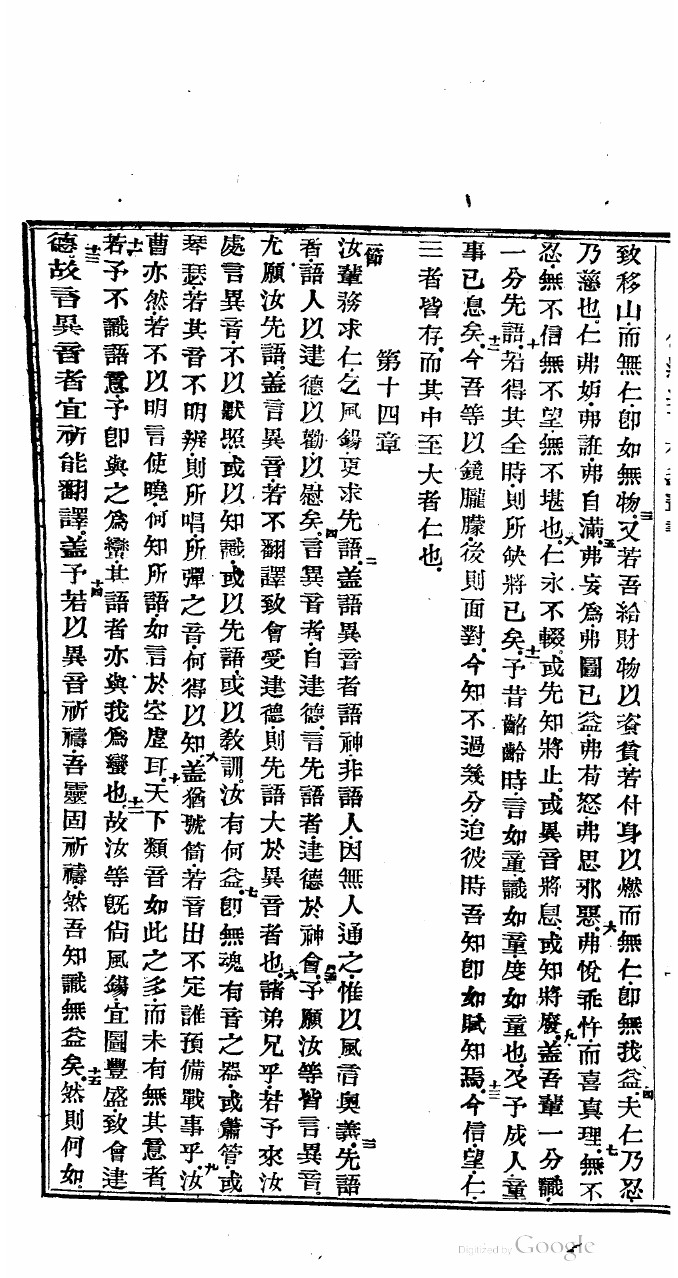 致移山、而無仁、卽如無物、三又若吾給財物以資貧、若付身以燃、而無仁、卽無我益、四夫仁乃忍、
乃藹也、仁弗妬、弗誑、弗自滿、五弗妄爲、弗圖己益、弗苟怒、弗思邪惡、六弗悅乖忤、而喜眞理、七無不
忍、無不信、無不望、無不堪也、八仁永不輟、或先知將止、或異音將息、或知將廢、九蓋吾輩一分識、
一分先語、十若得其全時、則所缺將已矣、十一予昔齠齡時、言如童、識如童、度如童也、及予成人、童
事已息矣、十二今吾等以鏡朧朦、後則面對、今知不過幾分、迨彼時吾知卽如賦知焉、十三今信、望、仁、
三者皆存、而其中至大者仁也、
第十四章
一節汝輩務求仁、乞風錫、更求先語、二蓋語異音者、語神非語人、因無人通之、惟以風言奧義、三先語
者、語人以建德、以勸、以慰矣、四言異音者、自建德、言先語者、建德於神會、五予願汝等皆言異音、
尤願汝先語、蓋言異音、若不翻譯致會受建德、則先語大於異音者也、六諸弟兄乎、若予來汝
處言異音、不以默照、或以知識、或以先語、或以教訓、汝有何益、七卽無魂有音之器、或簫管、或
琴瑟、若其音不明辨、則所唱所彈之音、何得以知、八蓋猶號筒、若音出不定、誰預備戰事乎、九汝
曹亦然、若不以明言使曉、何知所語、如言於空虛耳、十天下類音如此之多、而未有無其意者、
十一若予不識語意、予卽與之爲蠻、其語者亦與我爲蠻也、十二故汝等旣尙風錫、宜圖豐盛、致會建
德、十三故言異音者、宜祈能翻譯、十四蓋予若以異音祈禱、吾靈固祈禱、然吾知識無益矣、十五然則何如、
Digitized by Google